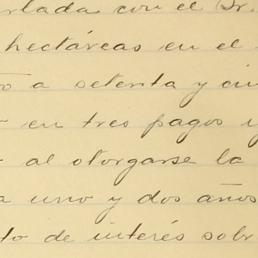 rlada con el Dr.
hectáreas en el
o a setenta y cin
en tres pagos i
al otorgarse la
a uno y dos años
to de interés sobr